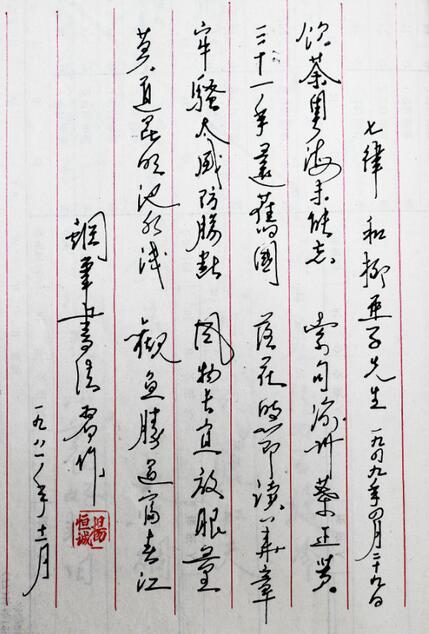 七律 和柳亚子先生 一九四九年四月二十九日
饮茶粤海未能忘 索句渝州葉正黄。
三十一年還舊國 落花时节读華章
牢騷太盛防腸断 风物长宜放眼量
莫道昆明池水浅 觀鱼勝过富春江
鋼笔書法習作
一九八一年十二月
楊恒城